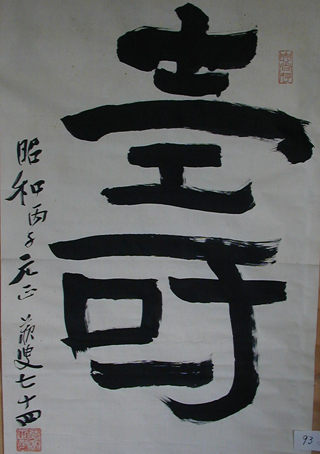 壽
昭和丙子元正 蘇叟七十四
93